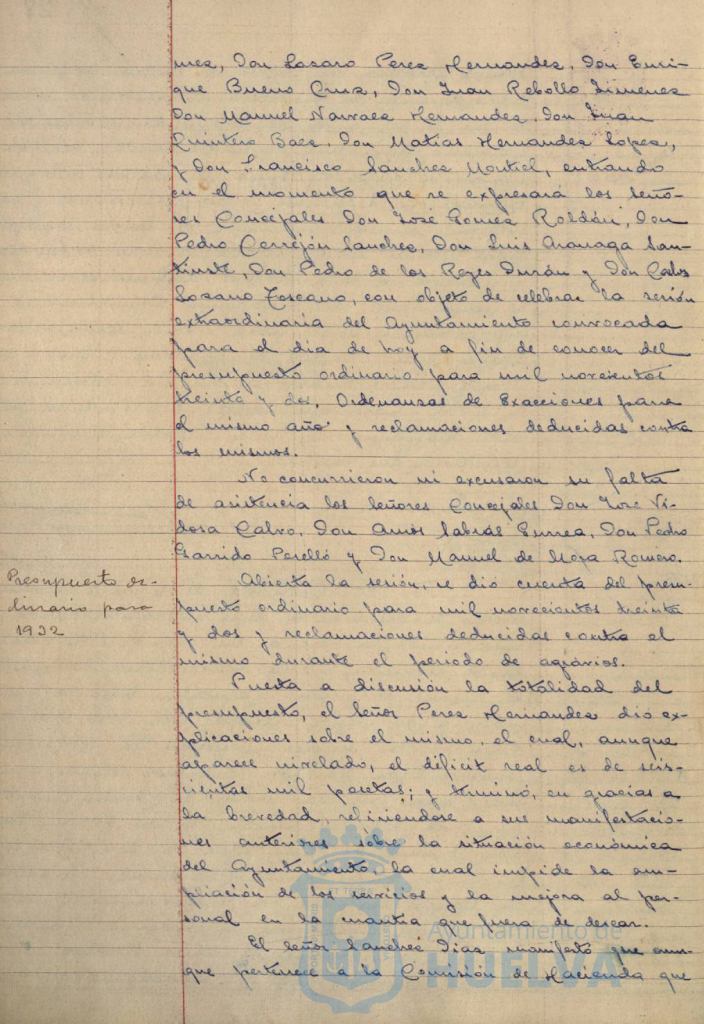 mez, Don Lazaro Perez Hernandez, Don Enri-
que Bueno Cruz, Don Juan Rebollo Jimenez
Don Manuel Narvaez Hernandez, Don Juan
Quintero Baez, Don Matias Hernandez Lopez,
y Don Francisco Sanchez Montiel, entrando
en el momento que se expresará los Seño-
res Concejales Don José Gomez Roldán, Don
Pedro Cerrejón Sanchez, Don Luis Aramaga San-
, Don Pedro de los Reyes Durán y Don Carlos
Lozano Toscano, con objeto de celebrar la sesión
extraordinaria del Ayuntamiento convocada
para el dia de hoy a fin de conocer del
presupuesto ordinario para mil novecientos
treinta y dos, Ordenanzas de Exacciones para
el mismo año y reclamaciones deducidas contra
los mismos.
No concurrieron ni excusaron su falta
de asistencia los Señores Concejales Don José Vi-
dosa Calvo, Don Amós Sabrás Gurrea, Don Pedro
Garrido Perelló y Don Manuel de Mora Romero.
Presupuesto or-
dinario para
1932
Abierta la sesión, se dió cuenta del presu-
puesto ordinario para mil novecientos treinta
y dos y reclamaciones deducidas contra el
mismo durante el periodo de agravios.
Puesta a discusión la totalidad del
presupuesto, el Señor Perez Hernandez dió ex-
plicaciones sobre el mismo, el cual, aunque
aparece nivelado, el déficit real es de seis-
cientas mil pesetas; y terminó, en gracias a
la brevedad, refiriendose a sus manifestacio-
nes anteriores sobre la situación económica
del Ayuntamiento, la cual impide la am-
pliación de los servicios y la mejora al per-
sonal en la cuantia que fuera de desear.
El Señor Sanchez Diaz manifestó que aun-
que pertenece a la Comisión de Hacienda que
Ayuntamiento de
HUELVA